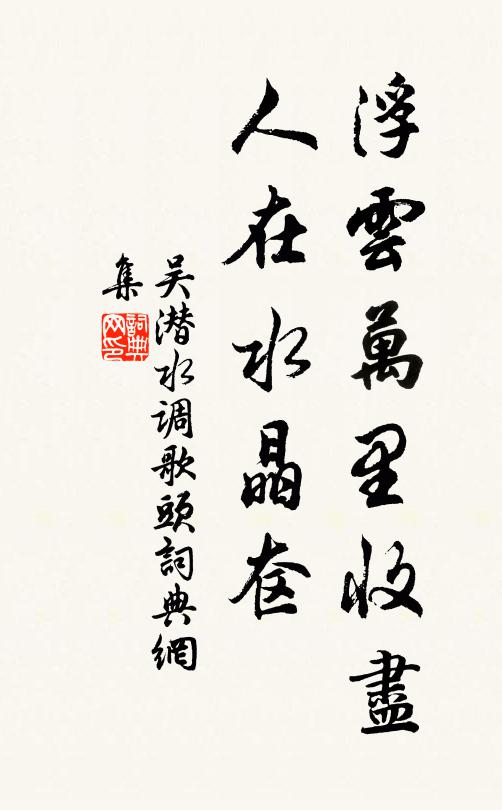 浮雲萬里收盡
人在水晶奁
吴潜水调歌頭詞典網
集
詞典
网印